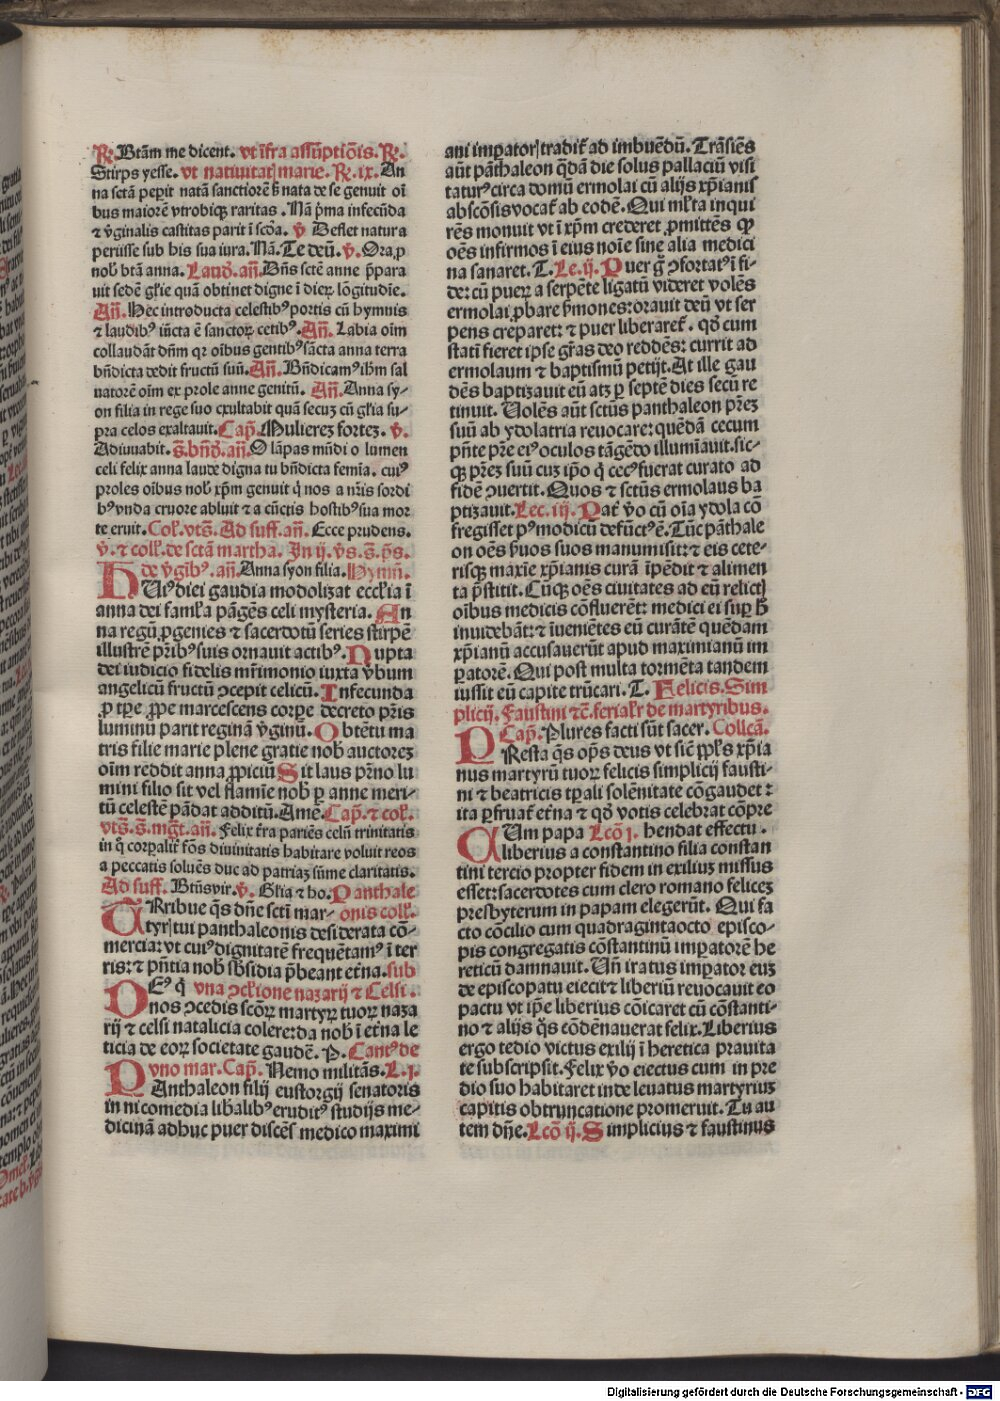 R. Btãm me dicent. vt ĩfra assũptiõis. R.
Stirps yesse. vt natiuitat marie. R. ix. An
na sctã pepit natã sanctiorẽ ß nata de se genuit oĩ
bus maiorẽ vtrobiqz raritas. Nã p̃ma infecũda
⁊ ỹginalis castitas parit ĩ scõa. ỹ Deflet natura
periisse sub bis sua iura. Nã. Te deũ. ỹ. Ora ꝓ
nob btã anna. Laud. añ. Dñs sctẽ anne p̃para
uit sedẽ gľie quã obtinet digne ĩ dieꝝ lõgitudĩe.
Añ. Hec introducta celestibꝰ portis cũ hymnis
⁊ laudibꝰ iũcta ẽ sanctoꝝ cetibꝰ. Añ. Labia oĩm
collaudãt dñm qꝛ oĩbus gentibꝰ sãcta anna terra
bñdicta dedit fructũ suũ. Añ. Bñdicamꝰ ihm sal
uatorẽ oĩm ex prole anne genitũ. Añ. Anna sy-
on filia in rege suo exultabit quã secuz cũ gľia su-
pra celos exaltauit. Cap. Mulierez fortez. ỹ.
Adiuuabit. s. bñd. añ. O lãpas mũdi o lumen
celi felix anna laude digna tu bñdicta femĩa. cuiꝰ
proles oĩbus nob xpm genuit q̃ nos a nr̃is sordi
bꝰ vnda cruore abluit ⁊ a cũctis hostibꝰ sua mor
te eruit. Coľ. vts. Ad suff. añ. Ecce prudens.
ỹ. ⁊ coll. de sctã martha. In ij. ỹs. s. ps.
de ỹgĩbꝰ. añ. Anna syon filia. Hymñ.
HUiꝰ diei gaudia modolizat eccľia ĩ
anna dei famľa pãgẽs celi mysteria. An
na regũ ꝓgenies ⁊ sacerdotũ series stirpẽ
illustrẽ pr̃ibꝰ suis ornauit actibꝰ. Nupta
dei iudicio fidelis mr̃imonio iuxta ỹbum
angelicũ fructũ ꝯcepit celicũ. Infecunda
ꝓ tp̃e ꝓpe marcescens corꝑe decreto pr̃is
luminũ parit reginã ỹginũ. Obtẽtu ma
tris filie marie plene gratie nob auctorez
oĩm reddit anna ꝓpiciũ Sit laus pr̃no lu
mini filio sit vel flamĩe nob ꝑ anne meri-
tũ celestẽ pãdat additũ. Amẽ. Cap. ⁊ coľ.
vts. s. mgt. añ. Felix t̃ra pariẽs celũ trinitatis
in q̃ corꝑaliť fõs diuinitatis habitare voluit reos
a peccatis soluẽs duc ad patriaz sũme claritatis.
Ad suff. Btũsvir. ỹ. Glia ⁊ ho. Panthale
TRibue q̃s dñe sctĩ mar- onis coll.
tyr tui panthaleonis desiderata cõ-
mercia: vt cuiꝰ dignitatẽ frequẽtamꝰ ĩ ter
ris: ⁊ p̃ñtia nob sbsidia p̃beant et̃na. sub
DEꝰ q̃ vna ꝯcľione nazarij ⁊ Celsi.
nos ꝯcedis scõꝝ martyꝝ tuoꝝ naza
rij ⁊ celsi natalicia colere: da nob ĩ et̃na le
ticia de eoꝝ societate gaudẽ. P. Cantꝰ de
vno mar. Cap. Nemo militãs. L. j.
PAnthaleon filij eustorgij senatoris
in nicomedia libalibꝰ eruditꝰ studijs me-
dicinã adhuc puer discẽs medico maximi
ani imꝑator tradiť ad imbuẽdũ. Trãsiẽs
aũt pãthaleon q̃dã die solus pallaciũ visi
taturꝰ circa domũ ermolai cũ alijs xp̃ianis
abscõsis vocať ab eodẽ. Qui mľta inqui
rẽs monuit vt ĩ xp̃m crederet ꝓmittẽs ꝙ
oẽs infirmos ĩ eius noĩe sine alia medici
na sanaret. T. Le. ij. Puer g̃ ꝯfortatꝰ ĩ fi-
de: cũ pueꝝ a serpẽte ligatũ videret volẽs
ermolai ꝓbare ỹmones: orauit deũ vt ser
pens creparet: ⁊ puer liberareť. qd cum
statĩ fieret ip̃e gr̃as deo reddẽs: currit ad
ermolaum ⁊ baptismũ petijt. At ille gau
dẽs baptizauit eũ atz ꝑ septẽ dies secũ re
tinuit. Volẽs aũt sctũs panthaleon pr̃ez
suũ ab ydolatria reuocare: quẽdã cecum
p̃ñte pr̃e eiꝰ oculos tãgẽdo illumĩauit. sic-
qz pr̃ez suũ cuz ip̃o q̃ cecꝰ fuerat curato ad
fidẽ ꝯuertit. Quos ⁊ sctũs ermolaus ba
ptizauit. Lec. iij. Pať ỹo cũ oĩa ydola cõ
fregisset pꝰ modicũ defũctꝰ ẽ. Tũc pãthale
on oẽs ỹuos suos manumisit: ⁊ eis cete-
risqz maxĩe xp̃ianis curã ĩpẽdit ⁊ alimen
ta p̃stitit. Cũqz oẽs ciuitates ad eũ relictis
oĩbus medicis cõfluerẽt: medici ei suꝑ ß
inuidebãt: ⁊ ĩueniẽtes eũ curãtẽ quẽdam
xp̃ianũ accusauerũt apud maximianũ im
ꝑatorẽ. Qui post multa tormẽta tandem
iussit eũ capite trũcari. T. Felicis. Sim
plicij. Faustini ⁊c̃. feriaľr de martyribus.
Cap. Plures facti sũt sacer. Collcã.
PResta q̃s op̃s deus vt sic̃ ppľs xp̃ia
nus martyrũ tuoꝝ felicis simplicij fausti-
ni ⁊ beatricis tp̃ali solẽnitate cõgaudet:
ita ꝑfruať et̃na ⁊ qd votis celebrat cõpre
CUm papa Lcõ j. hendat effectu.
liberius a constantino filia constan
tini tercio propter fidem in exiliuz missus
esset: sacerdotes cum clero romano felicez
presbyterum in papam elegerũt. Qui fa
cto cõcilio cum quadragintaocto episco-
pis congregatis cõstantinũ imꝑatorẽ he
reticũ damnauit. Uñ iratus imꝑator euz
de episcopatu eiecit ⁊ liberiũ reuocauit eo
pactu vt ip̃e liberius cõicaret cũ cõstanti-
no ⁊ alijs q̃s cõdẽnauerat felix. Liberius
ergo tedio victus exilij ĩ heretica prauita
te subscripsit. Felix ỹo eiectus cum in pre
dio suo habitaret inde leuatus martyriuz
capitis obtruncatione promeruit. Tu au
tem dñe. Lcõ ij. Simplicius ⁊ faustinus
Digitalisierung gefördert durch die Deutsche Forschungsgemeinschaft - DFG